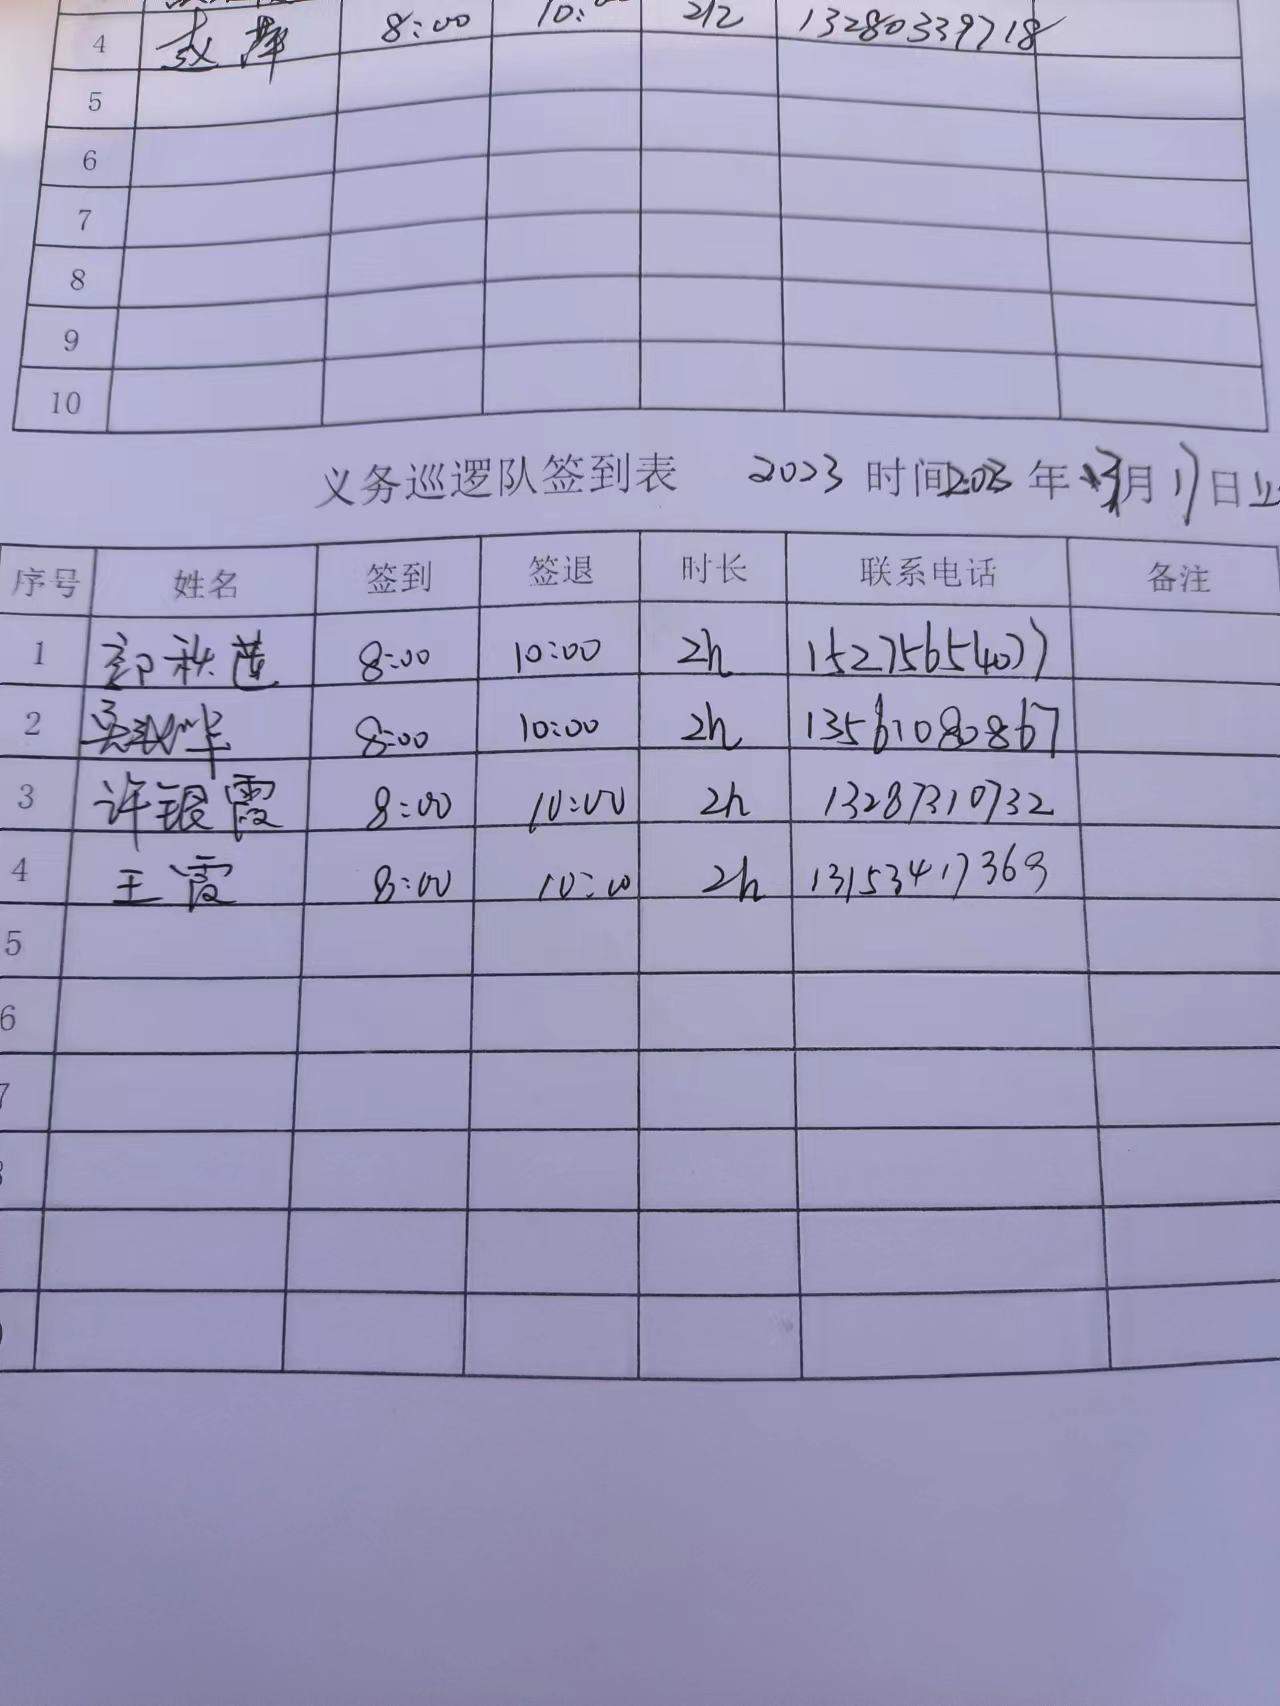 4 8:00 10: 2h 13280339718
5
6
7
8
9
10
义务巡逻队签到表 2023 时间2023年3月17日
序号 姓名 签到 签退 时长 联系电话 备注
1 8:00 10:00 2h 15275654077
2 8:00 10:00 2h 13561080867
3 许银霞 8:00 10:00 2h 13287310732
4 王霞 8:00 10:00 2h 13153417369
5
6
7